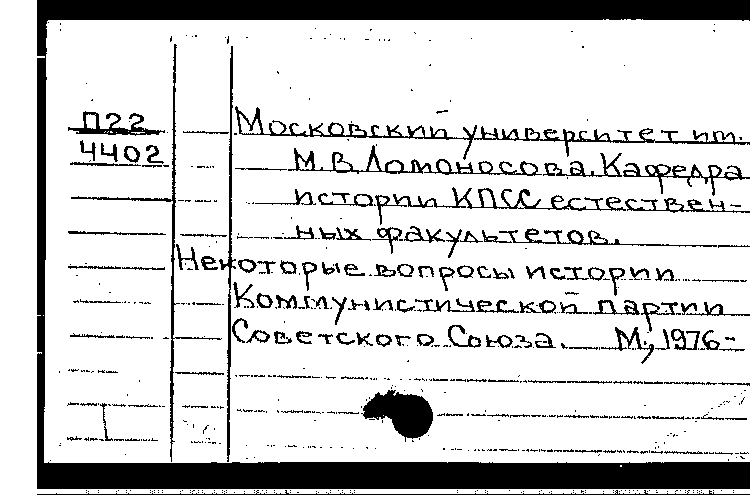 П22
4402
Московский университет им.
М.В.Ломоносова. Кафедра
истории КПСС естествен-
ных факультетов.
Некоторые вопросы истории
Коммунистической партии
Советского Союза. М., 1976-